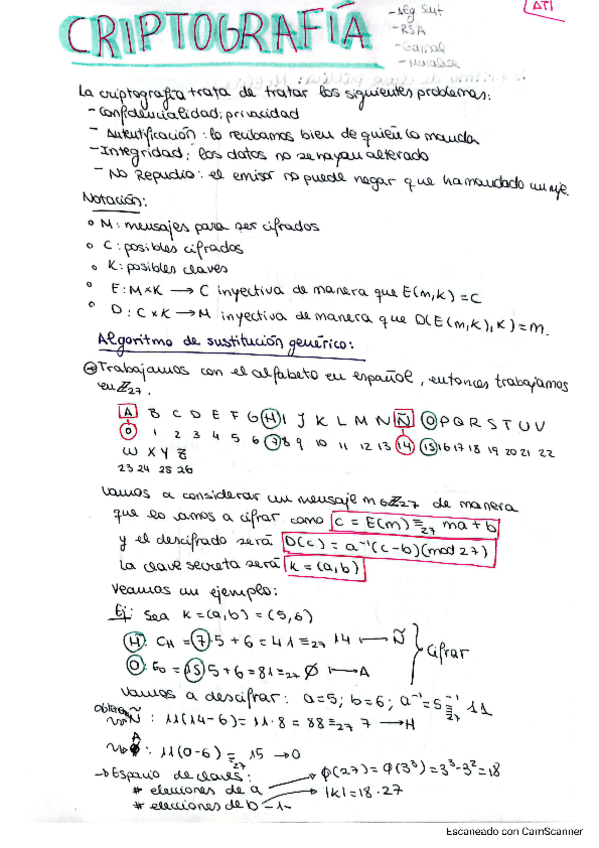 ATI
CRIPTOGRAFÍA
- RSA
La criptografía trata de tratar los siguientes problemas:
- Confidencialidad: privacidad
- Autentificación: lo recibamos bien de quién lo manda
- Integridad: los datos no se hayan alterado
- No Repudio: el emisor no puede negar que ha mandado un mje.
Notación:
o M: mensajes para ser cifrados
o C: posibles cifrados
o K: posibles claves
o E: M x K → C inyectiva de manera que E(m,k) = C
o D: C x K → M inyectiva de manera que D(E(m,k),K) = m.
Algoritmo de sustitución genérico:
Trabajamos con el alfabeto en español, entonces trabajamos
en Z27.
A B C D E F G H I J K L M N Ñ O P Q R S T U V
0 1 2 3 4 5 6 7 8 9 10 11 12 13 14 15 16 17 18 19 20 21 22
W X Y Z
23 24 25 26
Vamos a considerar un mensaje m ∈ Z27 de manera
que lo vamos a cifrar como c = E(m) ≡27 ma + b
y el descifrado será D(c) = a⁻¹(c-b)(mod 27)
La clave secreta será k = (a,b)
Veamos un ejemplo:
Ej: Sea k = (a,b) = (5,6)
H: CH = 7·5 + 6 = 41 ≡27 14 → Ñ
O: Eo = 15·5 + 6 = 81 ≡27 0 → A
Cifrar
Vamos a descifrar: a=5; b=6; a⁻¹ = 5⁻¹ ≡27 11
Ñ: 11(14-6) = 11·8 = 88 ≡27 7 → H
A
0: 11(0-6) ≡27 15 → O
→ Espacio de claves: φ(27) = φ(3³) = 3³-3² = 18
# elecciones de a |K| = 18·27
# elecciones de b
Escaneado con CamScanner